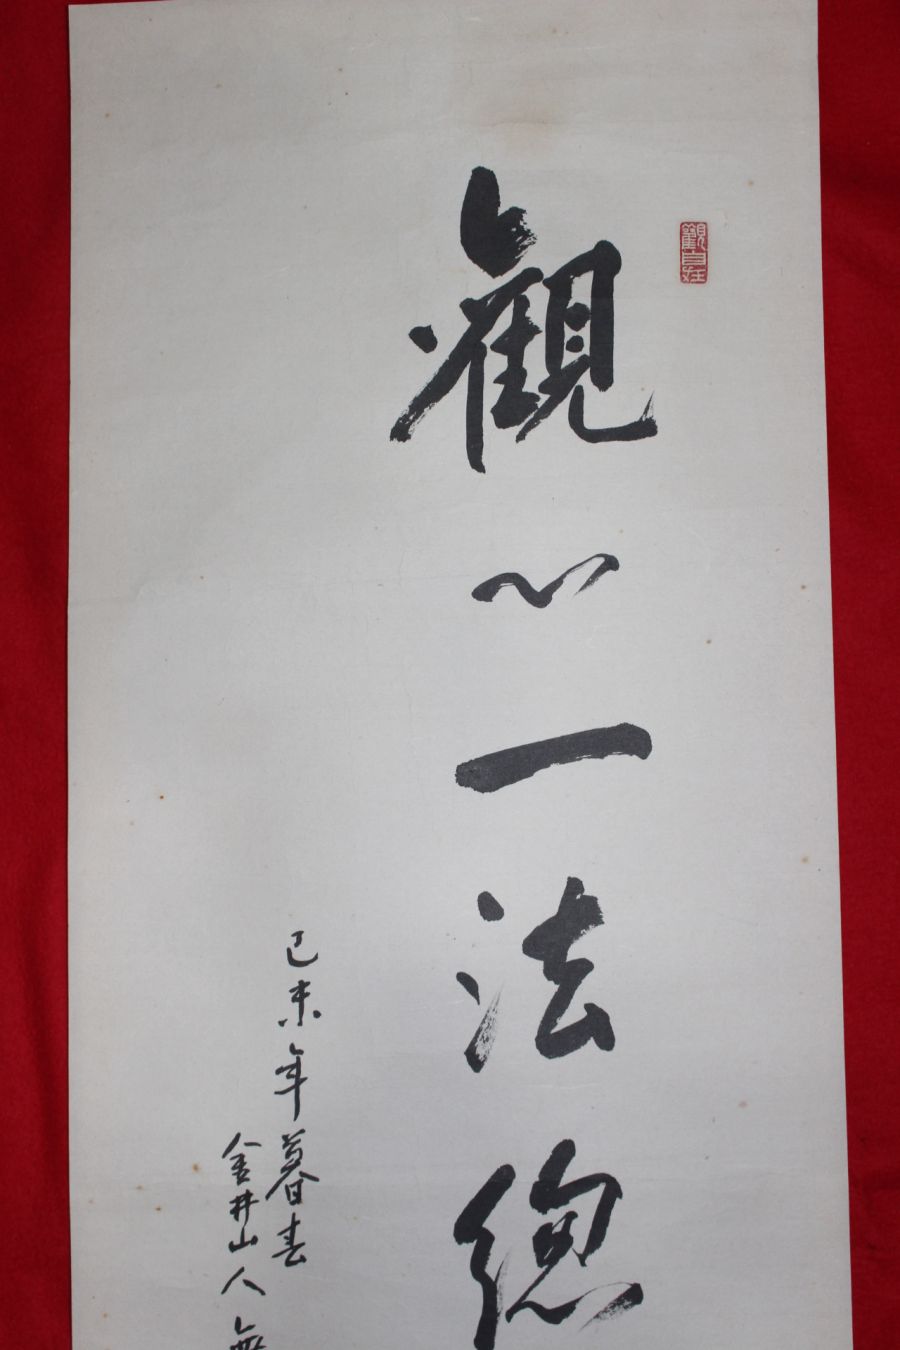 觀自在
觀心一法總
己未年暮春
金井山人無